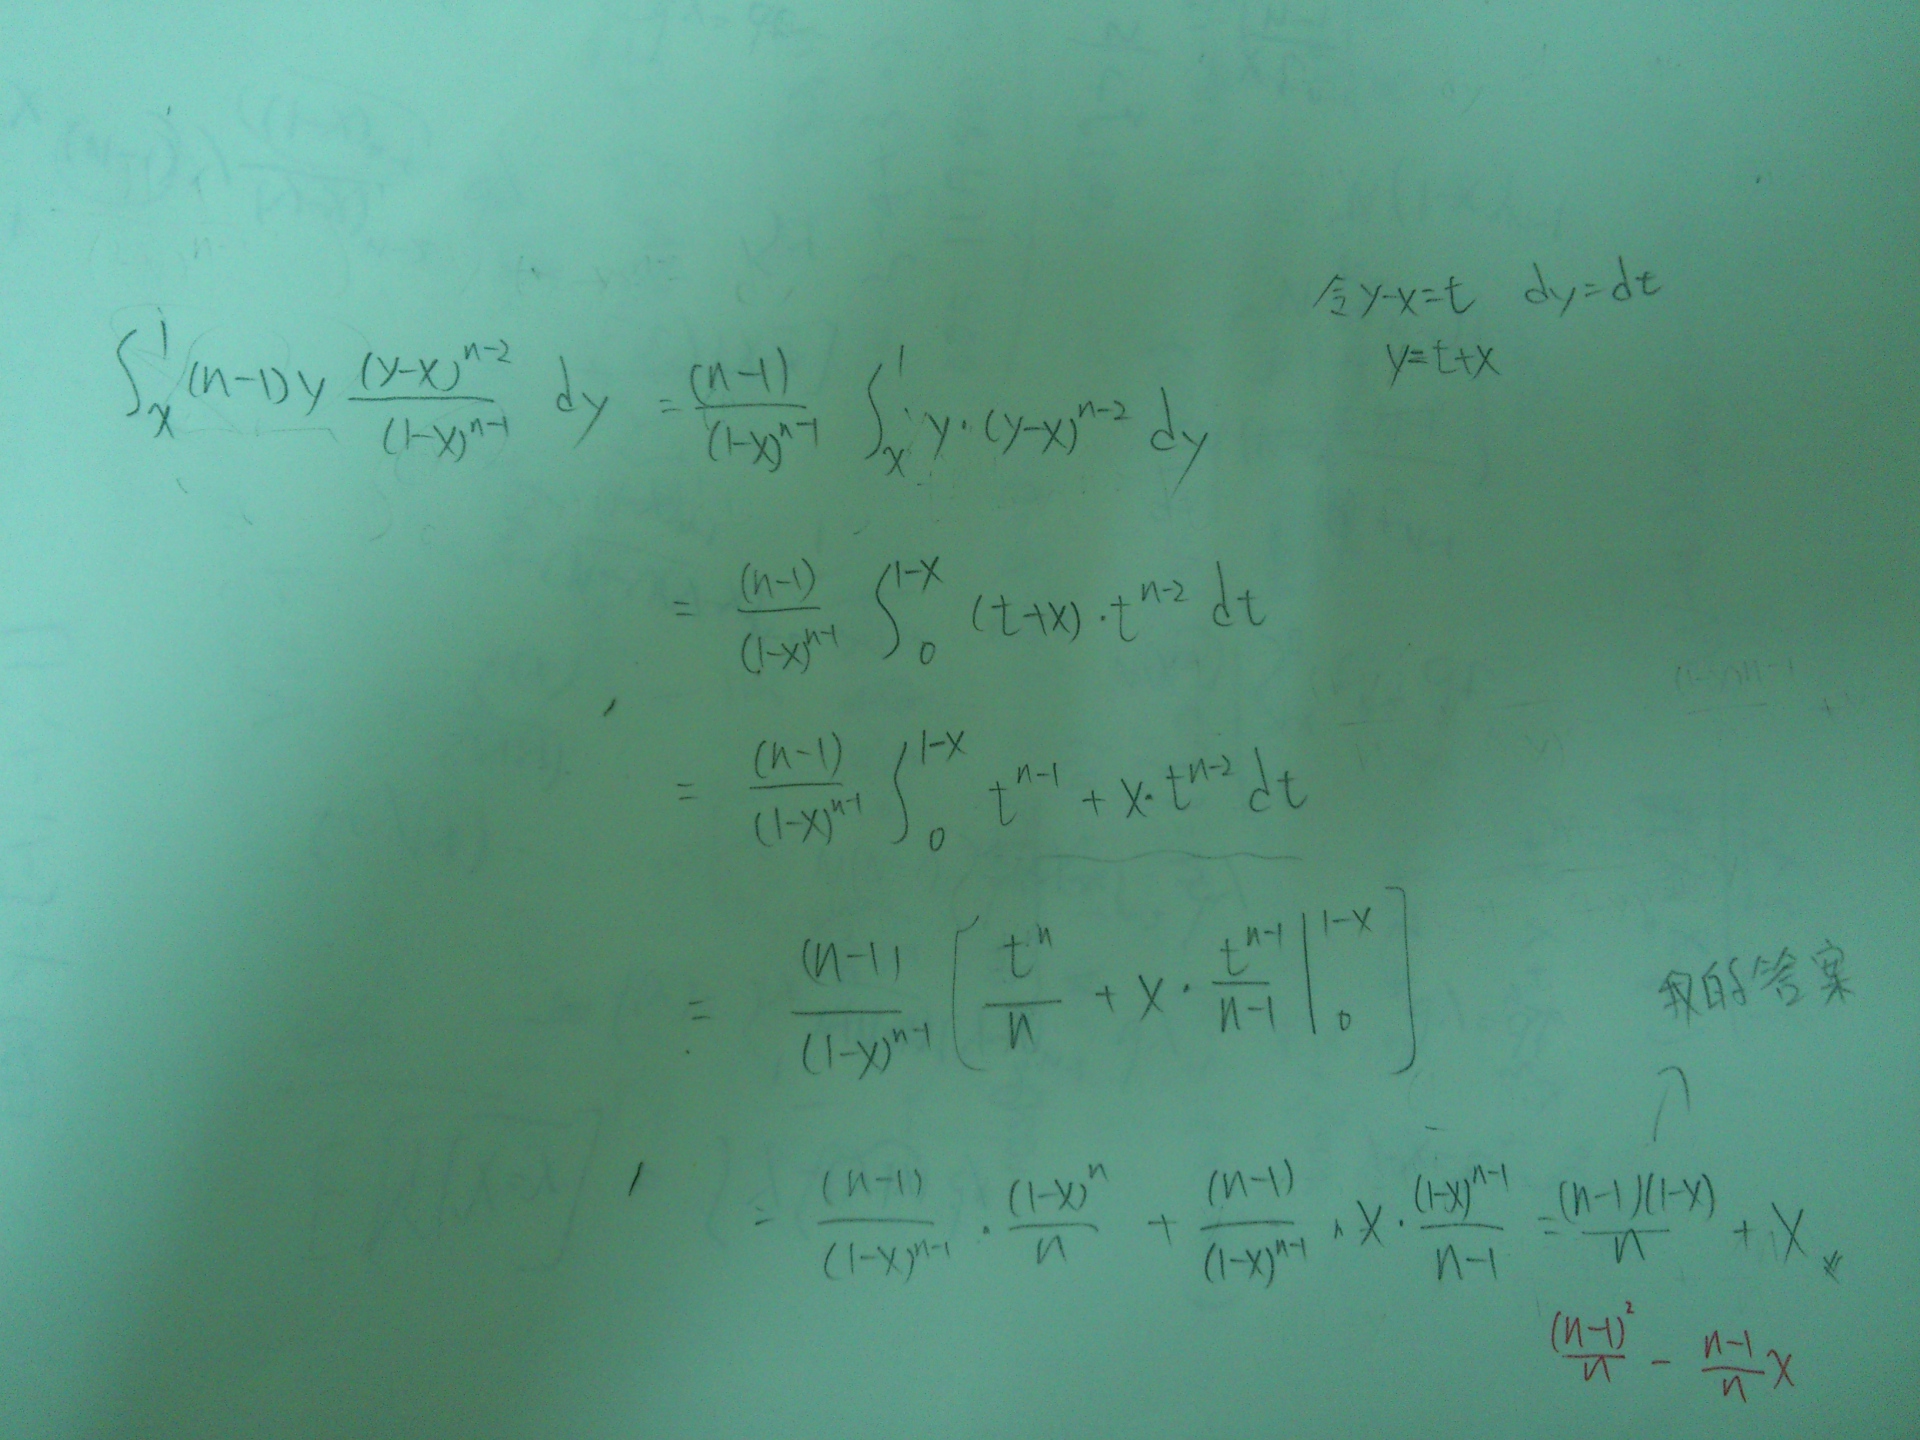 令y-x=t dy=dt
y=t+x
∫_x^1 (n-1)y (y-x)^{n-2}/(1-x)^{n-1} dy = (n-1)/(1-x)^{n-1} ∫_x^1 y·(y-x)^{n-2} dy
= (n-1)/(1-x)^{n-1} ∫_0^{1-x} (t+x)·t^{n-2} dt
= (n-1)/(1-x)^{n-1} ∫_0^{1-x} t^{n-1} + x·t^{n-2} dt
= (n-1)/(1-x)^{n-1} [ t^n/n + x·t^{n-1}/(n-1) |_0^{1-x} ]
我的答案
= (n-1)/(1-x)^{n-1} · (1-x)^n/n + (n-1)/(1-x)^{n-1} · x · (1-x)^{n-1}/(n-1) = (n-1)(1-x)/n + x
(n-1)^2/n - (n-1)/n x